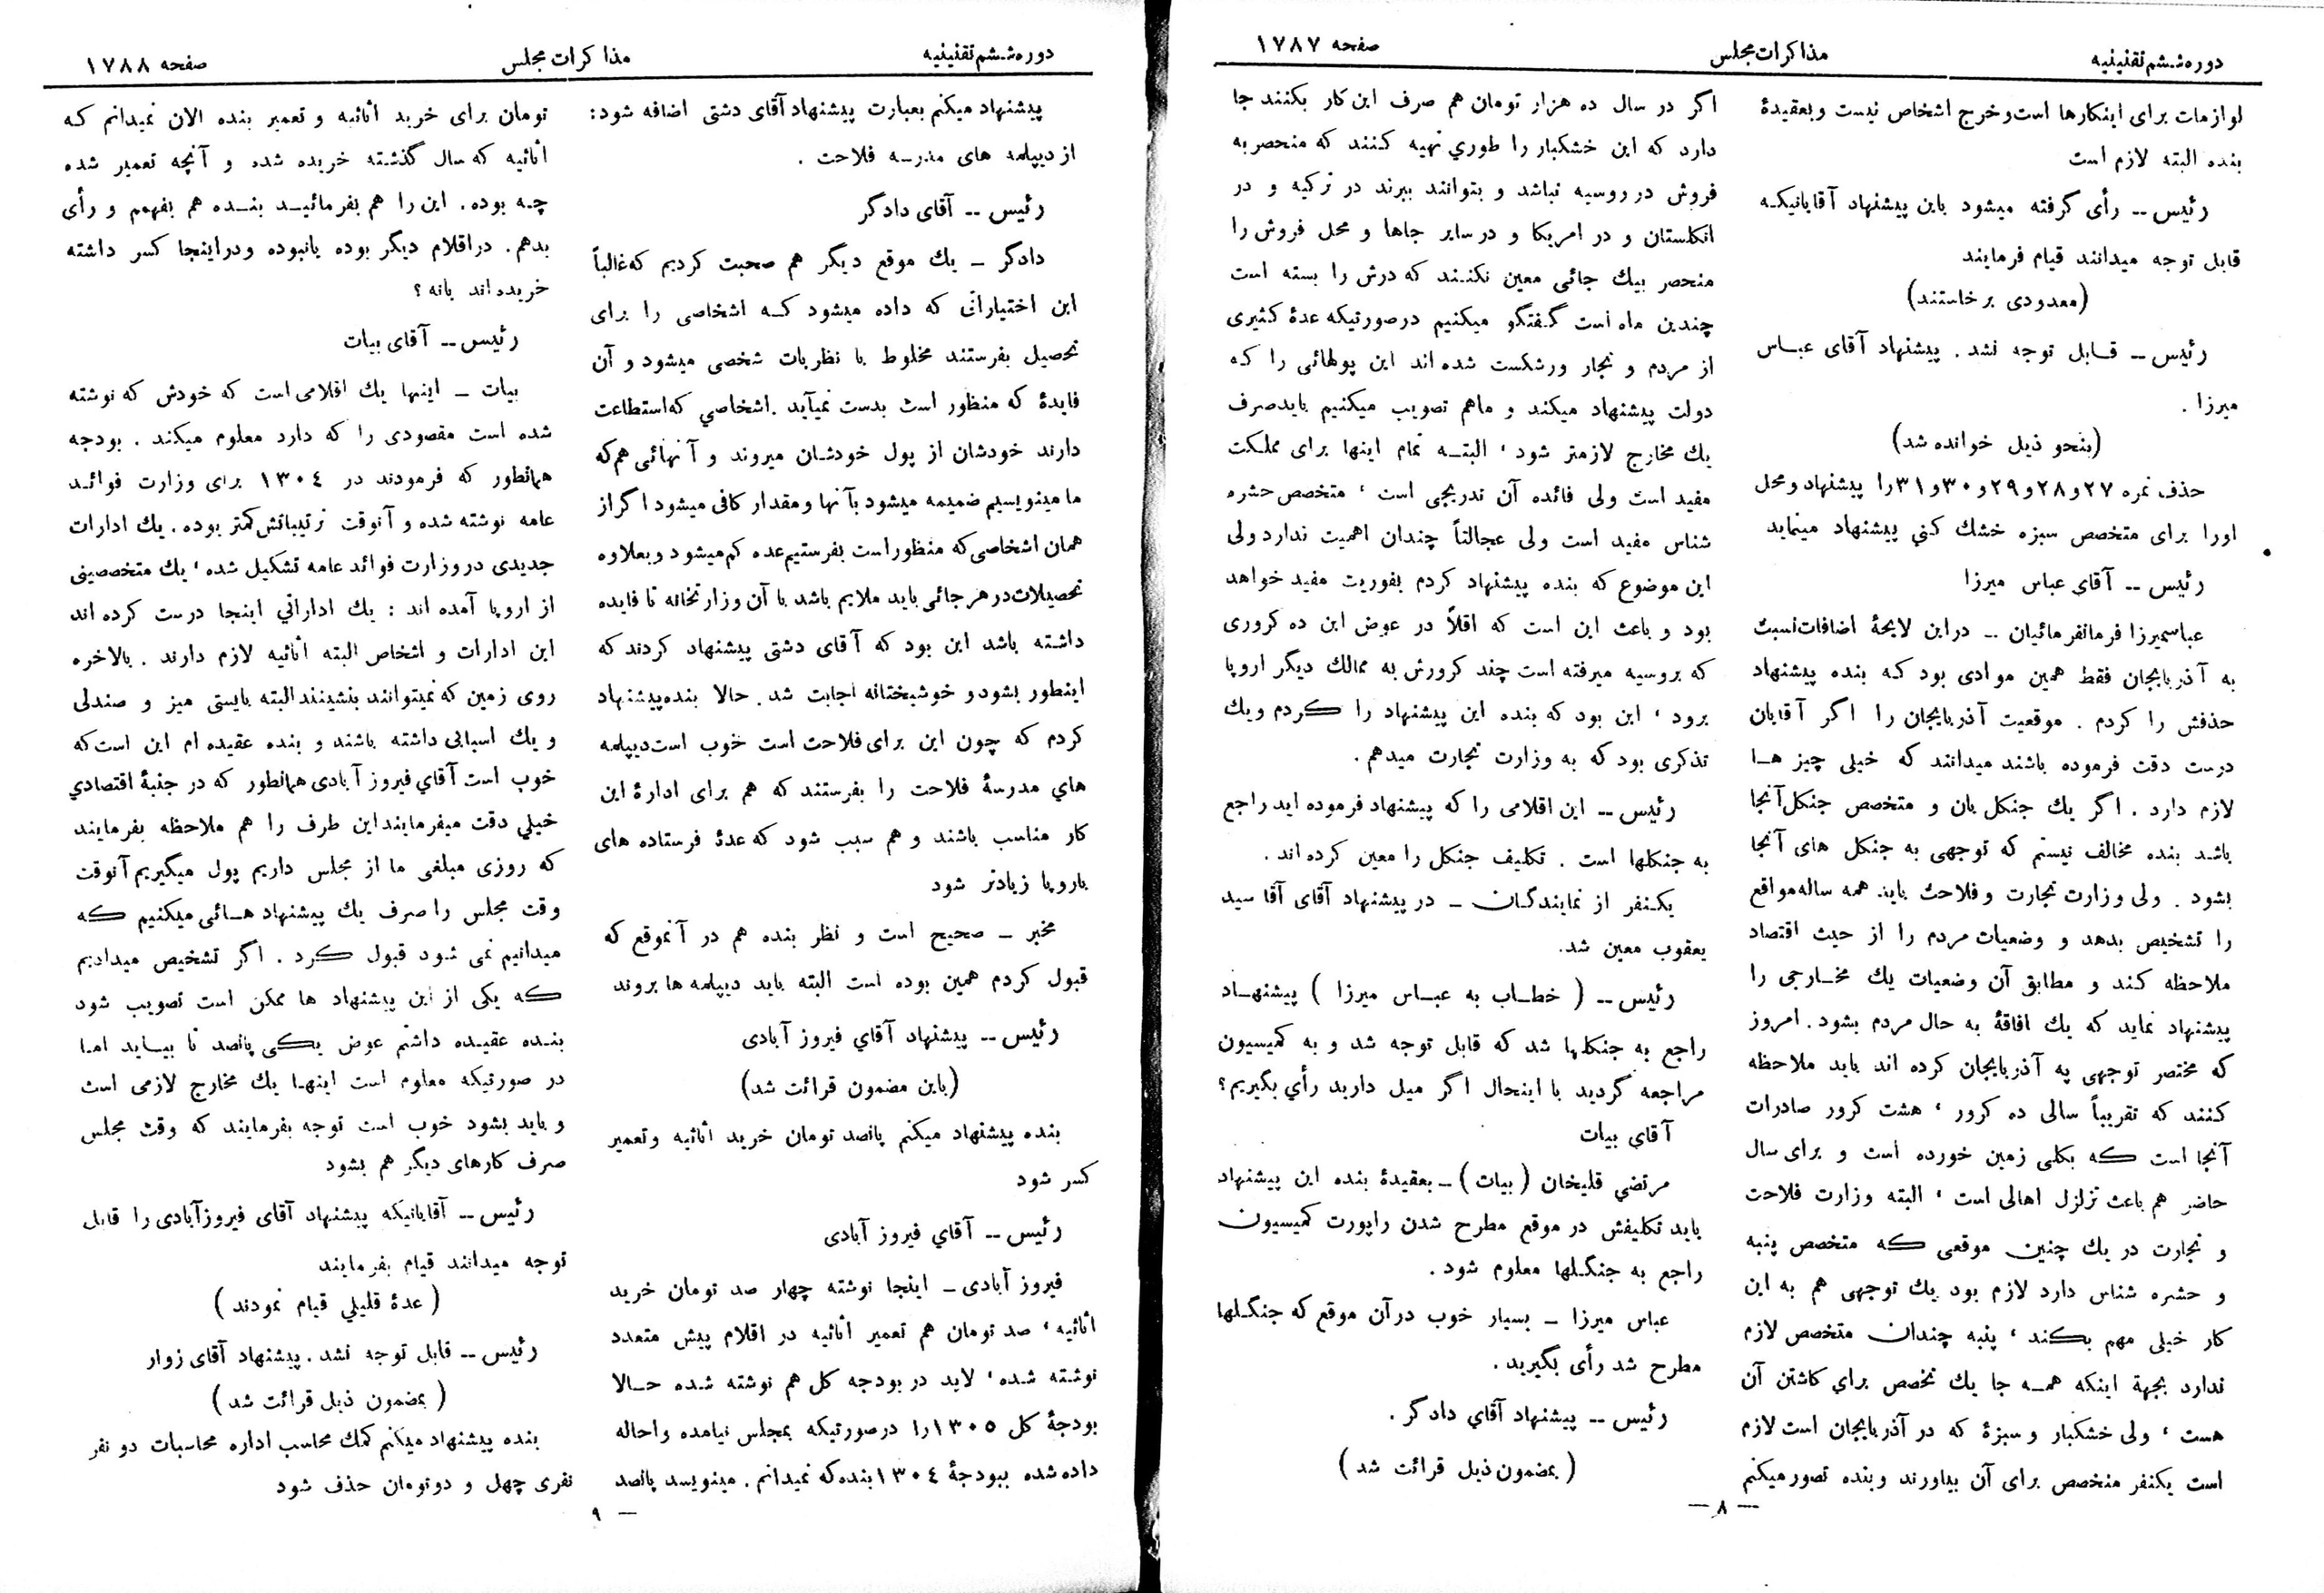 دوره ششم تقنینیه
مذاکرات مجلس
صفحه ۱۷۸۷
لوازمات برای اینکارها است و خرج اشخاص نیست و بعقیدهٔ
بنده البته لازم است
رئیس -- رأی گرفته میشود باین پیشنهاد آقایانیکه
قابل توجه میدانند قیام فرمایند
(معدودی برخاستند)
رئیس -- قابل توجه نشد . پیشنهاد آقای عباس
میرزا .
(بنحو ذیل خوانده شد)
حذف نمره ۲۷ و ۲۸ و ۲۹ و ۳۰ و ۳۱ را پیشنهاد و محل
اورا برای متخصص سبزه خشك کنی پیشنهاد مینماید
رئیس -- آقای عباس میرزا
عباسمیرزا فرمانفرمائیان -- دراین لایحهٔ اضافات نسبت
به آذربایجان فقط همین موادی بود که بنده پیشنهاد
حذفش را کردم . موقعیت آذربایجان را اگر آقایان
درست دقت فرموده باشند میدانند که خیلی چیز ها
لازم دارد . اگر یك جنکل بان و متخصص جنکل آنجا
باشد بنده مخالف نیستم که توجهی به جنکل های آنجا
بشود . ولی وزارت تجارت و فلاحت باید همه ساله مواقع
را تشخیص بدهد و وضعیات مردم را از حیث اقتصاد
ملاحظه کند و مطابق آن وضعیات یك مخارجی را
پیشنهاد نماید که یك افاقهٔ به حال مردم بشود . امروز
که مختصر توجهی به آذربایجان کرده اند باید ملاحظه
کنند که تقریباً سالی ده کرور ، هشت کرور صادرات
آنجا است که بکلی زمین خورده است و برای سال
حاضر هم باعث تزلزل اهالی است ، البته وزارت فلاحت
و تجارت در یك چنین موقعی که متخصص پنبه
و حشره شناس دارد لازم بود یك توجهی هم به این
کار خیلی مهم بکند ، پنبه چندان متخصص لازم
ندارد بجهة اینکه همه جا یك تخصص برای کاشتن آن
هست ، ولی خشکبار و سبزهٔ که در آذربایجان است لازم
است یکنفر متخصص برای آن بیاورند و بنده تصور میکنم
اگر در سال ده هزار تومان هم صرف این کار بکنند جا
دارد که این خشکبار را طوری تهیه کنند که منحصر به
فروش در روسیه نباشد و بتوانند ببرند در ترکیه و در
انکلستان و در امریکا و در سایر جاها و محل فروش را
منحصر بیك جائی معین نکنند که درش را بسته است
چندین ماه است گفتگو میکنیم درصورتیکه عدهٔ کثیری
از مردم و تجار ورشکست شده اند این پولهائی را که
دولت پیشنهاد میکند و ماهم تصویب میکنیم باید صرف
یك مخارج لازمتر شود ، البته تمام اینها برای مملکت
مفید است ولی فائده آن تدریجی است ، متخصص حشره
شناس مفید است ولی عجالتاً چندان اهمیت ندارد ولی
این موضوع که بنده پیشنهاد کردم بفوریت مفید خواهد
بود و باعث این است که اقلاً در عوض این ده کروری
که بروسیه میرفته است چند کرورش به ممالك دیگر اروپا
برود ، این بود که بنده این پیشنهاد را کردم و یك
تذکری بود که به وزارت تجارت میدهم .
رئیس -- این اقلامی را که پیشنهاد فرموده اید راجع
به جنکلها است . تکلیف جنکل را معین کرده اند .
یکنفر از نمایندگان - در پیشنهاد آقای آقا سید
یعقوب معین شد.
رئیس -- ( خطاب به عباس میرزا ) پیشنهاد
راجع به جنکلها شد که قابل توجه شد و به کمیسیون
مراجعه گردید با اینحال اگر میل دارید رأی بگیریم؟
آقای بیات
مرتضی قلیخان (بیات) - بعقیدهٔ بنده این پیشنهاد
باید تکلیفش در موقع مطرح شدن راپورت کمیسیون
راجع به جنگلها معلوم شود .
عباس میرزا - بسیار خوب در آن موقع که جنگلها
مطرح شد رأی بگیرید .
رئیس -- پیشنهاد آقای دادگر .
( بمضمون ذیل قرائت شد )
— ۸ —
دوره ششم تقنینیه
مذاکرات مجلس
صفحه ۱۷۸۸
پیشنهاد میکنم بعبارت پیشنهاد آقای دشتی اضافه شود:
از دیپلمه های مدرسه فلاحت .
رئیس -- آقای دادگر
دادگر - یك موقع دیگر هم صحبت کردیم که غالباً
این اختیاراتی که داده میشود که اشخاصی را برای
تحصیل بفرستند مخلوط با نظریات شخصی میشود و آن
فایدهٔ که منظور است بدست نمیآید . اشخاصی که استطاعت
دارند خودشان از پول خودشان میروند و آنهائی هم که
ما مینویسیم ضمیمه میشود بآنها و مقدار کافی میشود اگر از
همان اشخاصی که منظور است بفرستیم عده کم میشود و بعلاوه
تحصیلات در هر جائی باید ملایم باشد با آن وزارتخانه تا فایده
داشته باشد این بود که آقای دشتی پیشنهاد کردند که
اینطور بشود و خوشبختانه اجابت شد. حالا بنده پیشنهاد
کردم که چون این برای فلاحت است خوب است دیپلمه
های مدرسهٔ فلاحت را بفرستند که هم برای ادارهٔ این
کار مناسب باشند و هم سبب شود که عدهٔ فرستاده های
باروپا زیادتر شود
مخبر - صحیح است و نظر بنده هم در آنموقع که
قبول کردم همین بوده است البته باید دیپلمه ها بروند
رئیس -- پیشنهاد آقای فیروز آبادی
(باین مضمون قرائت شد)
بنده پیشنهاد میکنم پانصد تومان خرید اثاثیه و تعمیر
کسر شود
رئیس -- آقای فیروز آبادی
فیروز آبادی - اینجا نوشته چهار صد تومان خرید
اثاثیه ، صد تومان هم تعمیر اثاثیه در اقلام پیش متعدد
نوشته شده ، لابد در بودجه کل هم نوشته شده حالا
بودجهٔ کل ۱۳۰۵ را درصورتیکه بمجلس نیامده و احاله
داده شده ببودجهٔ ۱۳۰٤ بنده که نمیدانم . مینویسد پانصد
تومان برای خرید اثاثیه و تعمیر بنده الان نمیدانم که
اثاثیه که سال گذشته خریده شده و آنچه تعمیر شده
چه بوده . این را هم بفرمائید بنده هم بفهمم و رأی
بدهم. دراقلام دیگر بوده یانبوده ودراینجا کسر داشته
خریده اند یانه ؟
رئیس -- آقای بیات
بیات - اینها یك اقلامی است که خودش که نوشته
شده است مقصودی را که دارد معلوم میکند . بودجه
همانطور که فرمودند در ۱۳۰٤ برای وزارت فوائد
عامه نوشته شده و آنوقت ترتیباتش کمتر بوده . یك ادارات
جدیدی در وزارت فوائد عامه تشکیل شده ، یك متخصصینی
از اروپا آمده اند : یك اداراتی اینجا درست کرده اند
این ادارات و اشخاص البته اثاثیه لازم دارند . بالاخره
روی زمین که نمیتوانند بنشینند البته بایستی میز و صندلی
و یك اسبابی داشته باشند و بنده عقیده ام این است که
خوب است آقای فیروز آبادی همانطور که در جنبهٔ اقتصادی
خیلی دقت میفرمایند این طرف را هم ملاحظه بفرمایند
که روزی مبلغی ما از مجلس داریم پول میگیریم آنوقت
وقت مجلس را صرف یك پیشنهاد هائی میکنیم که
میدانیم نمی شود قبول کرد . اگر تشخیص میدادیم
که یکی از این پیشنهاد ها ممکن است تصویب شود
بنده عقیده داشتم عوض یکی پانصد تا بیاید اما
در صورتیکه معلوم است اینها یك مخارج لازمی است
و باید بشود خوب است توجه بفرمایند که وقت مجلس
صرف کارهای دیگر هم بشود
رئیس -- آقایانیکه پیشنهاد آقای فیروزآبادی را قابل
توجه میدانند قیام بفرمایند
( عدهٔ قلیلی قیام نمودند )
رئیس -- قابل توجه نشد . پیشنهاد آقای زوار
( بمضمون ذیل قرائت شد )
بنده پیشنهاد میکنم کمك محاسب اداره محاسبات دو نفر
نفری چهل و دوتومان حذف شود
— ۹